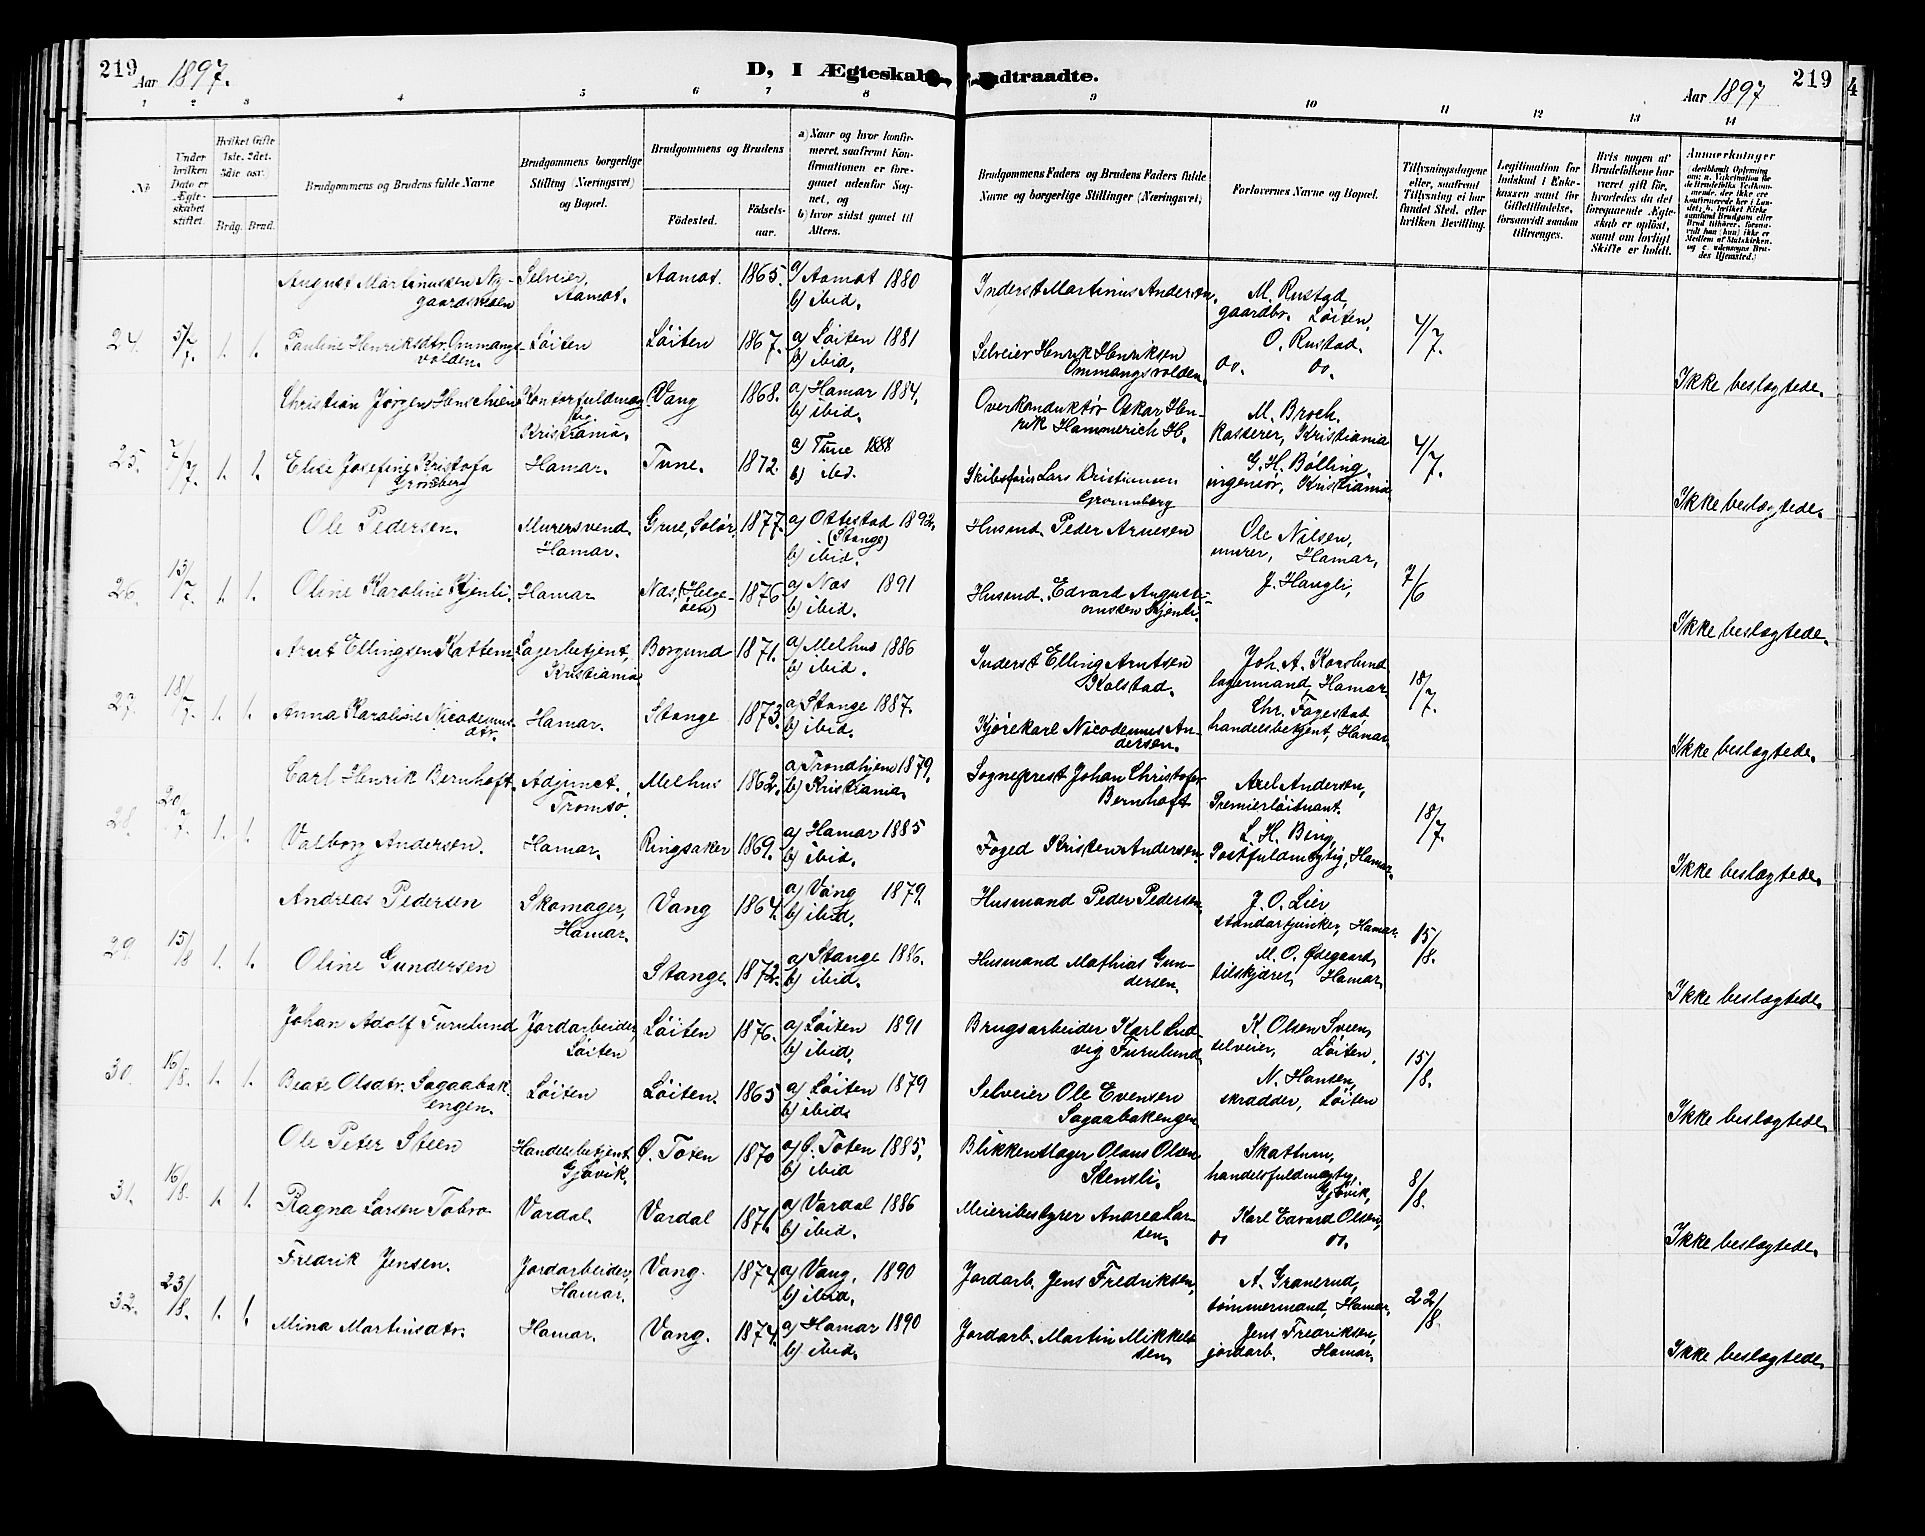 219 Aar 1897.
D, I Ægteskab Indtraadte.
Aar 1897 219
4
1 2 3 4 5 6 7 8 9 10 11 12 13 14
No
Under hvilken Dato er Ægteskabet stiftet.
Hvilket Gifte 1ste, 2det, 3die osv.)
Brdg. Brud.
Brudgommens og Brudens fulde Navne
Brudgommens borgerlige Stilling (Næringsvei) og Bopæl.
Brudgommens og Brudens
Födested. Födselsaar.
a) Naar og hvor konfirmeret, saafremt Konfirmationen er foregaaet udenfor Sognet, og
b) hvor sidst gaaet til Alters.
Brudgommens Faders og Brudens Faders fulde Navne og borgerlige Stillinger (Næringsvei)
Forlovernes Navne og Bopæl.
Tillysningsdagene eller, saafremt Tillysning ei har fundet Sted, efter hvilken Bevilling.
Legitimation for Indskud i Enkekassen samt for Giftetilladelse, forsaavidt saadan tiltrænges.
Hvis nogen af Brudefolkene har været gift før, hvorledes da det foregaaende Ægteskab er opløst, samt om lovligt Skifte er holdt.
Anmærkninger
24. 5/7. 1. 1.
August Martinussen Nygaardsmoen Selveier, Aamot. Aamot. 1865. a) Aamot 1880 b) ibid. Inderst Martinus Andersen. M. Rustad, gaardbr. Löiten. 4/7.
Pauline Henriksdtr. Ommangsvolden. Löiten Löiten 1867. a) Löiten 1881 b) ibid. Selveier Henrik Henriksen Ommangsvolden. O. Rustad. do. do. Ikke beslægtede.
25. 7/7. 1. 1.
Christian Jörgen Henschien Kontorfuldmægtig Kristiania. Vang 1868. a) Hamar 1884. b) ibid. Overkonduktör Oskar Henrik Hammerich H. M. Broch. Kasserer, Kristiania 4/7.
Elise Josefine Kristofa Hamar. Tune. 1872. a) Tune 1888 b) ibd. Skibsförer Lars Kristiansen G. H. Bölling, ingeniör, Kristiania Ikke beslægtede.
26. 13/7. 1. 1.
Ole Pedersen. Murersvend, Hamar. Grue, Solör, 1877. a) Ottestad 1892. (Stange) b) ibid. Husmd. Peder Arnesen Ole Nilsen, murer, Hamar, 7/6
Oline Karoline Kjenli. Hamar Næs, (Helgeöen) 1876. a) Næs 1891 b) ibid. Husmd. Edvard Augustinussen Kjenli. J. Haugli, Ikke beslægtede.
27. 18/7. 1. 1.
Arnt Ellingsen Kattem. Lagerbetjent, Kristiania Borgund 1871. a) Melhus 1886 b) ibid. Inderst Elling Arntsen Kolstad. Joh. A. Korslund lagermand, Hamar. 18/7.
Anna Karoline Nicodemusdtr. Hamar. Stange 1873. a) Stange 1887. b) ibid. Kjörekarl Nicodemus Andersen. Chr. Fagestad, handelsbetjent, Hamar. Ikke beslægtede.
28. 20/7. 1. 1.
Carl Henrik Bernhoft. Adjunct. Tromsö. Melhus 1862. a) Trondhjem 1879. b) Kristiania. Sogneprest Johan Christofer Bernhoft Axel Andersen, Premierlöitnant. 18/7.
Valborg Andersen. Hamar. Ringsaker 1869. a) Hamar 1885 b) ibid. Foged Kristen Andersen. L. H. Bing, Postfuldmægtig, Hamar. Ikke beslægtede.
29. 15/8 1. 1.
Andreas Pedersen Skomager, Hamar. Vang 1864. a) Vang 1879. b) ibid. Husmand Peder Pedersen. J. O. Lier, standartjunker, Hamar. 15/8.
Oline Gundersen Stange. 1872. a) Stange 1886. b) ibid. Husmand Mathias Gundersen. M. O. Ødegaard, tilskjærer, Hamar. Ikke beslægtede.
30. 16/8. 1. 1.
Johan Adolf Furulund Jordarbeider, Löiten Löiten 1876. a) Löiten 1891 b) ibid. Brugsarbeider Karl Ludvig Furulund. K. Olsen Sveen, selveier, Löiten, 15/8.
Beate Olsdtr. Sagaabakengen. Löiten Löiten. 1865 a) Löiten 1879 b) ibid. Selveier Ole Evensen Sagaabakengen N. Hansen, skrædder, Löiten Ikke beslægtede.
31. 16/8. 1. 1.
Ole Peter Steen Handelsbetjent, Gjövik. Ø. Toten 1870 a) Ø. Toten 1885. b) ibid Blikkenslager Olaus Olsen Stensli. Skattum, handelsfuldmægtig, Gjövik, 8/8.
Ragna Larsen Tobro Vardal. Vardal 1871. a) Vardal 1886 b) ibid. Meieribestyrer Andrea Larsen. Karl Edvard Olsen, do do. Ikke beslægtede.
32. 23/8. 1. 1.
Fredrik Jensen. Jordarbeider, Hamar. Vang. 1874. a) Vang. 1890 b) ibid. Jordarb. Jens Fredriksen, A. Granerud, tömmermand, Hamar. 22/8.
Mina Martinsdtr. Hamar. Vang. 1874. a) Hamar 1890 b) ibid. Jordarb. Martin Mikkelsen. Jens Fredriksen, jordarb. Hamar. Ikke beslægtede.